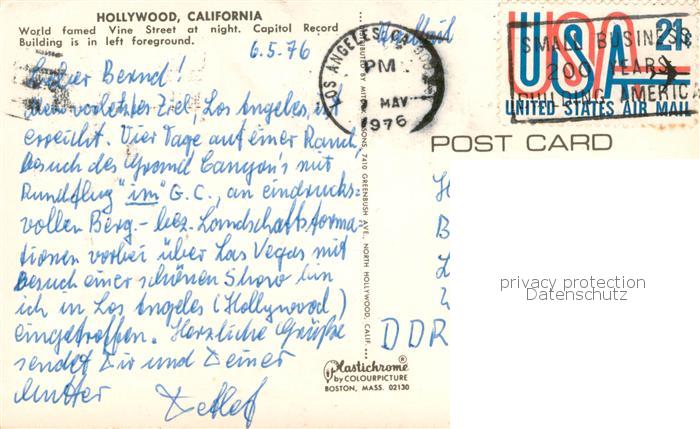 HOLLYWOOD, CALIFORNIA
World famed Vine Street at night. Capitol Record
Building is in left foreground.
6.5.76
Lieber Bernd!
Mein vorletzter Ziel, Los Angeles, ist
erreicht. Vier Tage auf einer Ranch,
besuch des Grand Canyon's mit
Rundflug "im" G.C., an eindrucks-
vollen Berg.- bez. Landschaftsforma-
tionen vorbei über Las Vegas mit
besuch einer schönen Show bin
ich in Los Angeles (Hollywood)
eingetroffen. Herzliche Grüße
sendet Dir und Deiner
Mutter Detlef
LOS ANGELES, CA
PM
MAY
1976
USA 21c
UNITED STATES AIR MAIL
SMALL BUSINESS
200 YEARS
BUILDING AMERICA
POST CARD
7410 GREENBUSH AVE., NORTH HOLLYWOOD, CALIF.
DDR
Plastichrome®
by COLOURPICTURE
BOSTON, MASS. 02130
privacy protection
Datenschutz